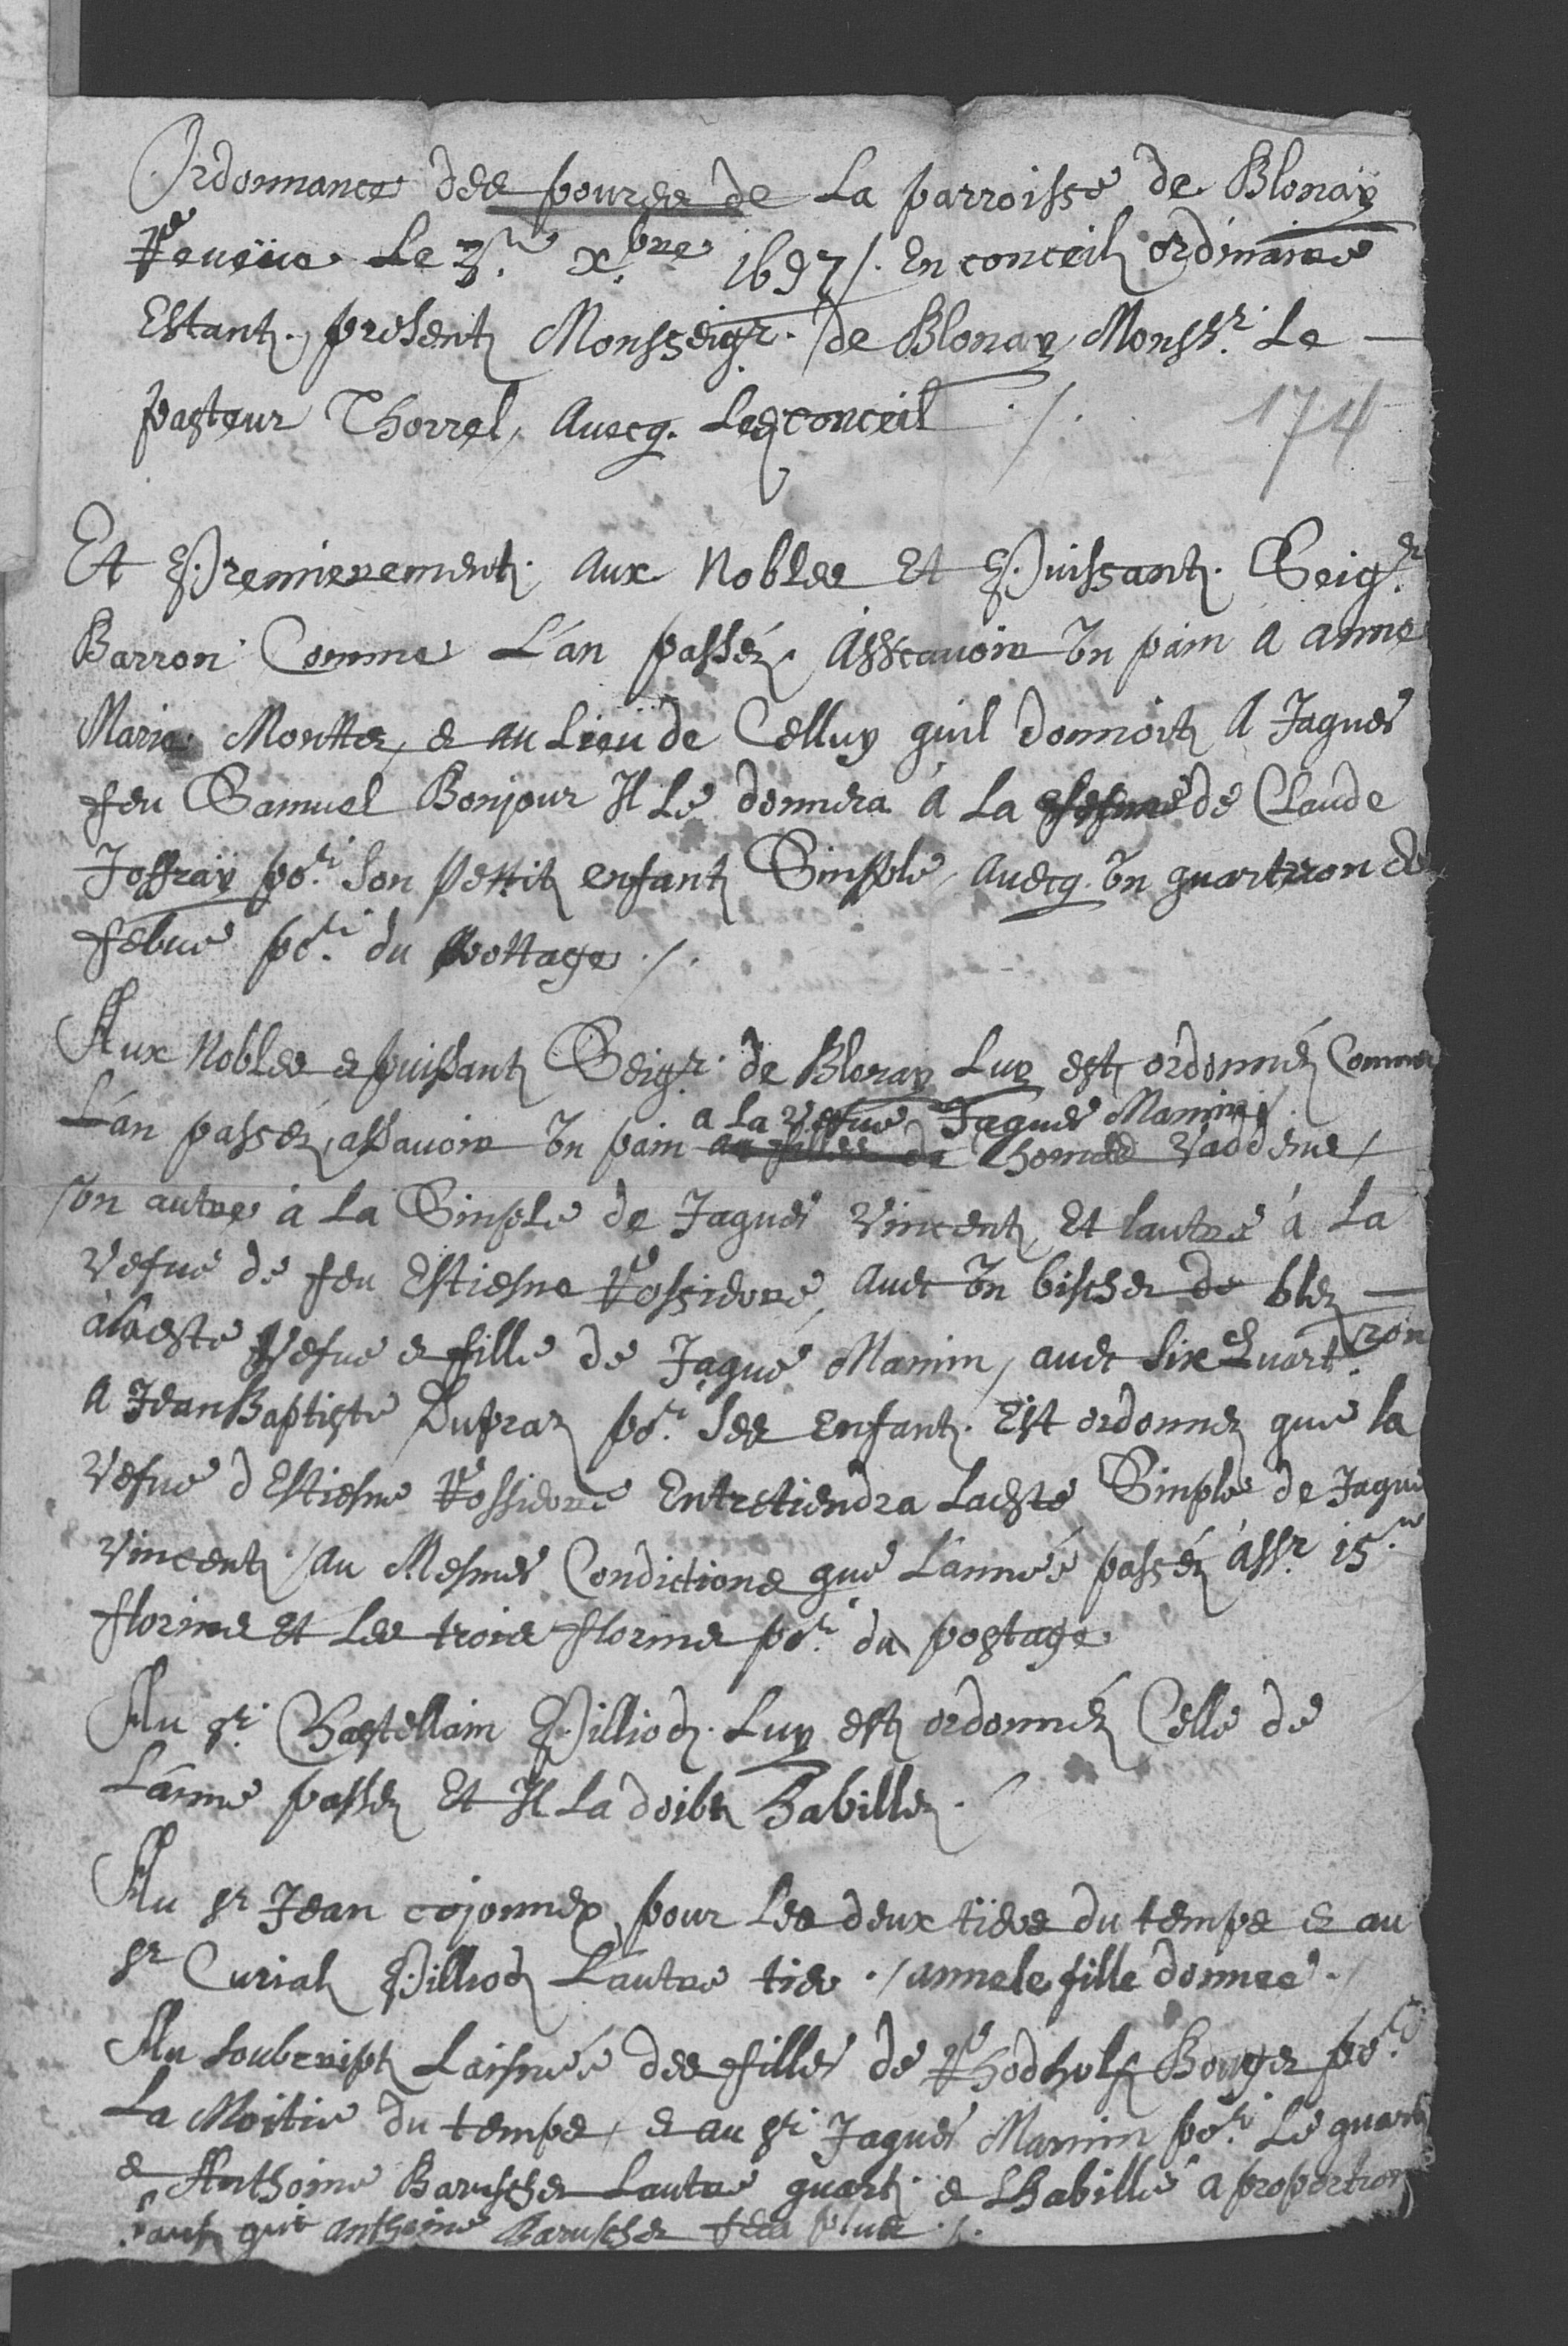 Ordonnance des poures de La parroisse de Blonaÿ
Reueüe Le 3.e x.bre 1697 /. En conceil ordinaire
Estant. present Monsseigr. de Blonay, Monsr. Le —
pasteur Thorrel, Auecq. Led conceil ./.
174
Et Premierement. aux Nobles Et Puissant. Seigr.
Barron Comme L'an passéz Assçauoir Vn pain a anne
Marie Monttet, e au Lieu de Celluy quil donnoit A Jaques
feu Samuel Bonjour Il Le donnera à La fesme de Claude
Joffraÿ por. Son Pettit enfant Simple, auecq. Vn quartteron de
febue por. du Pottage ./.
Aux Nobles e puissant Seigr. de Blonay Luy est ordonnéz Comme
a La Vefue Jaques Mamin
L'an passéz, assauoir Vn pain au filles de Thomas Vaddeme,
Vn autre à La Simple de Jaques Vincent, Et lautre à La
Vefue de feu Estiesne Rossiere, auec Vn bischet de blez —
à Laeste Vefue e fille de Jaque Mamin, auec Six Quart.ron
A Jean Baptiste Dupraz por. Ses Enfant. Est ordonnez que la
Vefue d'Estiesne Rossiere Entretiendra Laeste Simple de Jaque
Vincent, au Mesmes Condictions que L'année passéz assr. 15.
florins Et Les trois florins por. du postage
Au sr. Chastellain Pilliod. Luy est ordonnéz Celle de
L'anné passez Et Il La doibt habillez.
Au sr Jean cojonnex, pour Les deux tiers du temps e au
sr Curial Pilliod L'autre tier ./ anne le fille donnee ./
Au Soubcript Laisnée des filles de Rhodholf Bonjer por.
La Moitie du temps, e au sr. Jaques Mamin por. Le quart
e Anthoine Baruschet Lautre quart. e Lhabillé a proportion
Sauf que anthoine Baruschet fera plus ./.